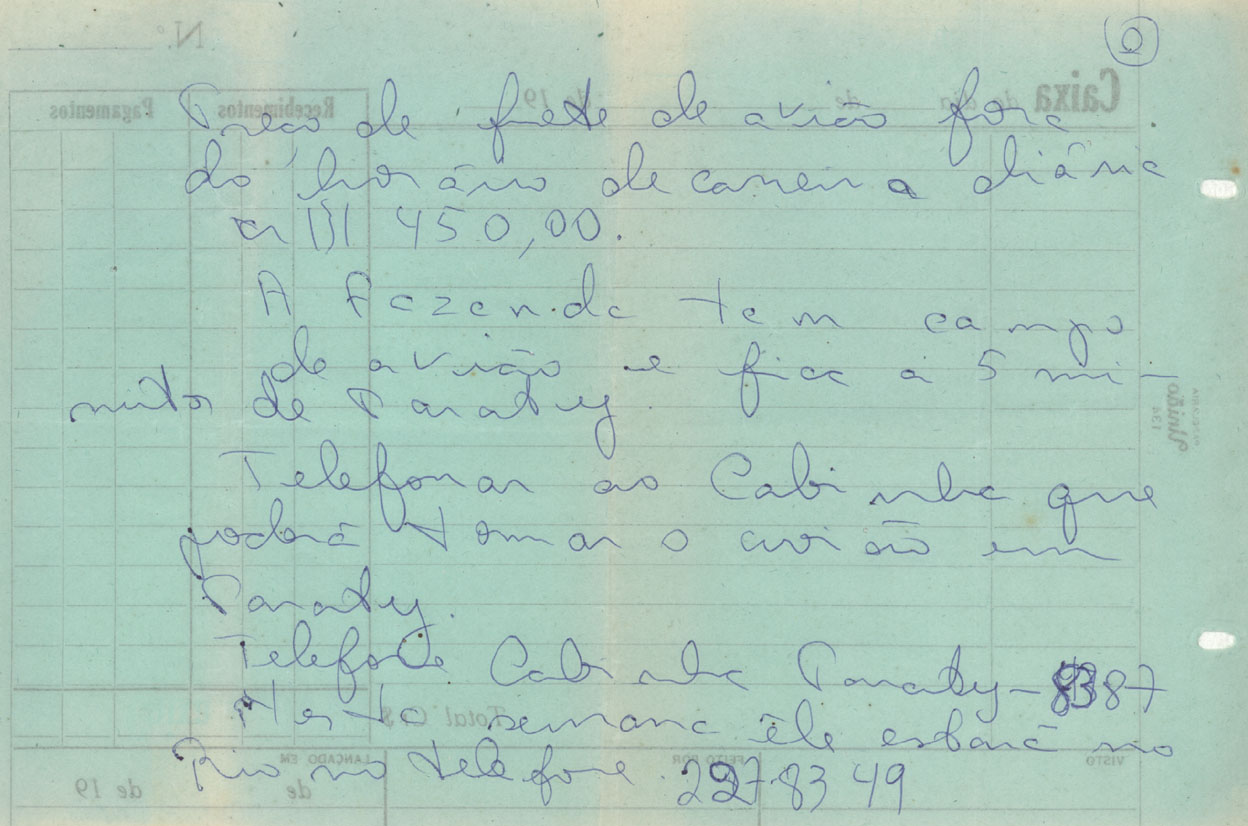 Preço de frete de avião fora
do horário de carreira diária
450,00.
A Fazenda tem campo
de avião e fica a 5 mi-
nutos de Paraty.
Telefonar ao Cabinha que
poderá tomar o avião em
Paraty.
Telefone Cabinha Paraty - 8387
Nesta semana êle estará no
Rio no telefone 2278349
Caixa
de 19
Recebimentos
Pagamentos
N.º
União
Total Cr$
VISTO
FEITO POR
LANÇADO EM
de
de 19